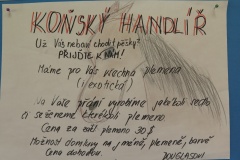 KOŇSKÝ HANDLÍŘ
Už Vás nebaví chodit pěšky?
PŘIJĎTE K NÁM!
Máme pro Vás všechna plemena
(i exotická)
Na Vaše přání vyrobíme jakékoli sedlo
či seženeme kterékoli plemeno.
Cena za extra plemeno 30 $
Možnost domluvy na jméně, plemeně, barvě
Cena dohodou.
DOUGLASOVI